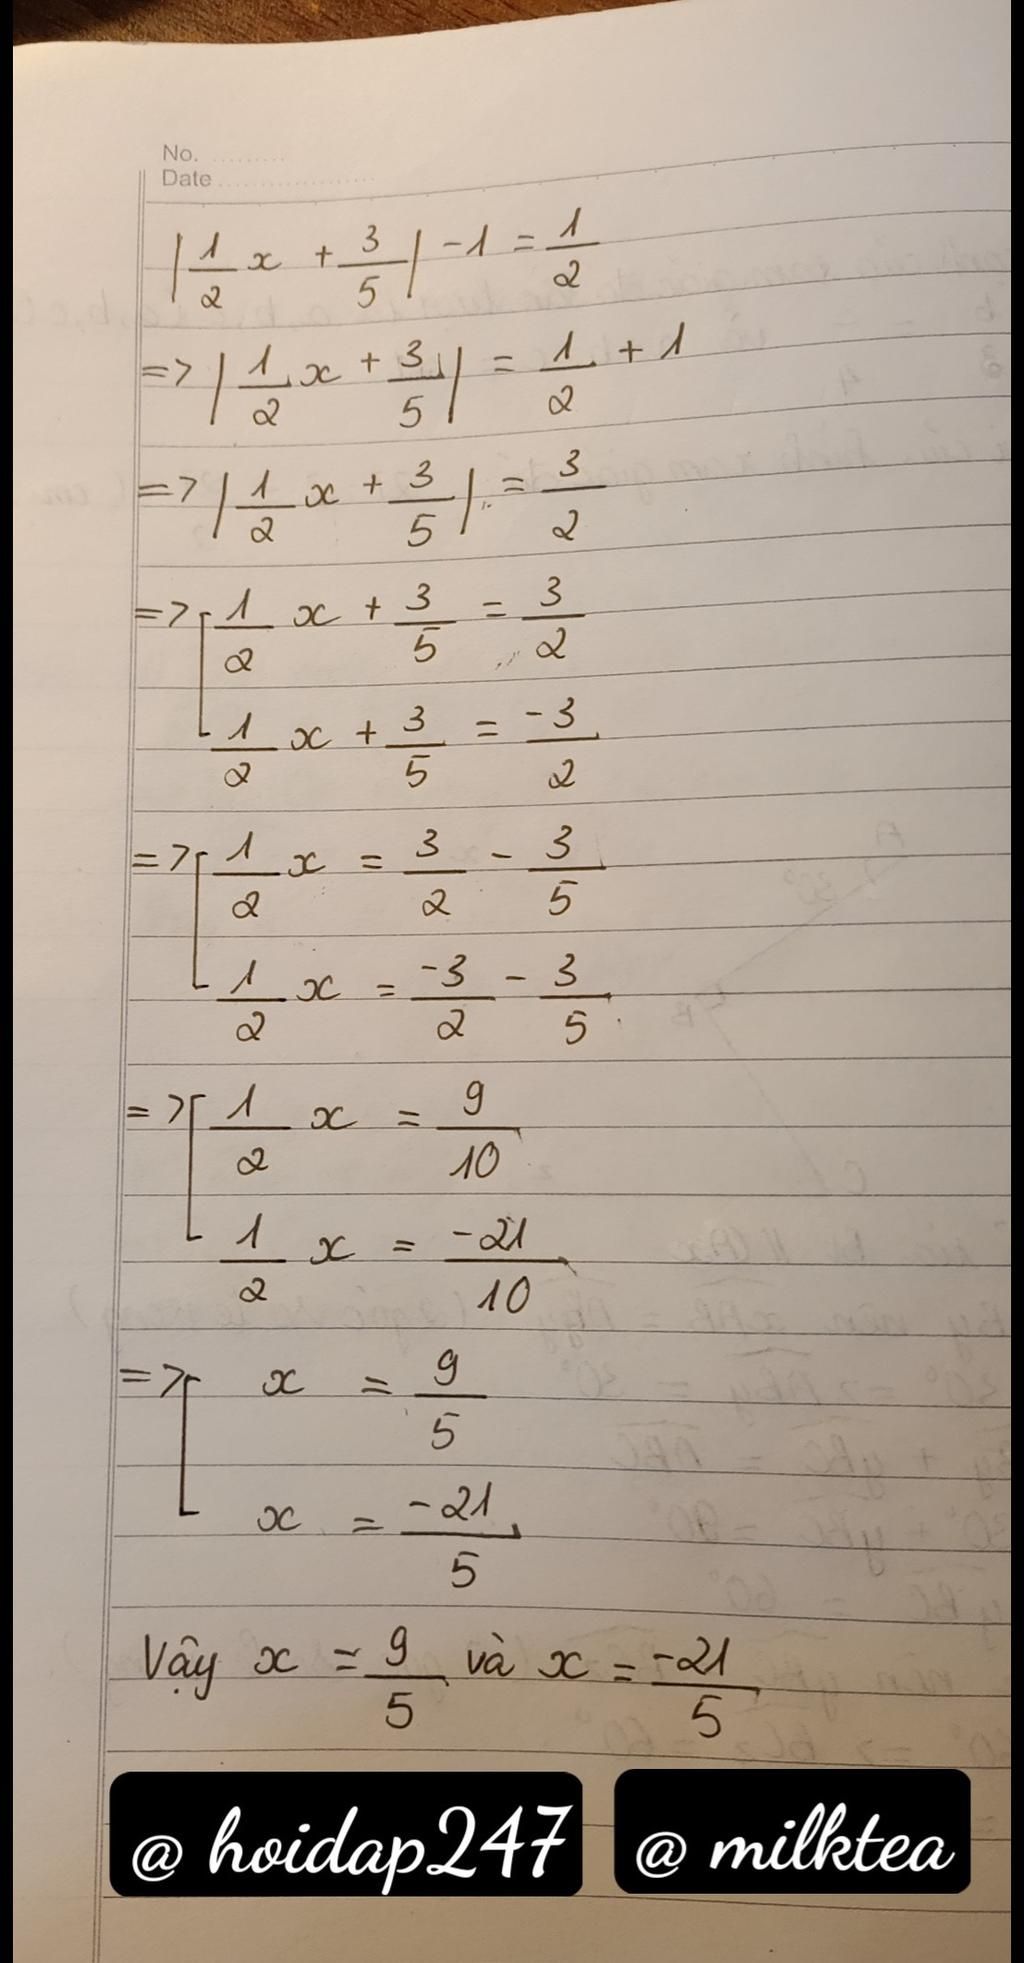 No. ..........
Date ....................
|1/2 x + 3/5| - 1 = 1/2
=> |1/2 x + 3/5| = 1/2 + 1
=> |1/2 x + 3/5| = 3/2
=> [ 1/2 x + 3/5 = 3/2
1/2 x + 3/5 = -3/2
=> [ 1/2 x = 3/2 - 3/5
1/2 x = -3/2 - 3/5
=> [ 1/2 x = 9/10
1/2 x = -21/10
=> [ x = 9/5
x = -21/5
Vậy x = 9/5 và x = -21/5
@ hoidap247 @ milktea